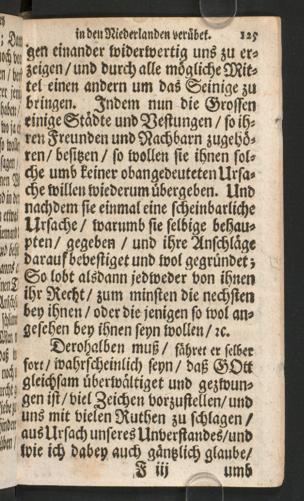 in den Niederlanden verübet. 125
gen einander widerwertig uns zu er-
zeigen / und durch alle mögliche Mit-
tel einen andern um das Seinige zu
bringen. Indem nun die Grossen
einige Städte und Vestungen / so ih-
ren Freunden und Nachbarn zugehö-
ren / besitzen / so wollen sie ihnen sol-
che umb keiner obangedeuteten Ursa-
che willen wiederum übergeben. Und
nachdem sie einmal eine scheinbarliche
Ursache / warumb sie selbige behau-
pten / gegeben / und ihre Anschläge
darauf bevestiget und wol gegründet;
So lobt alsdann jedweder von ihnen
ihr Recht / zum minsten die nechsten
bey ihnen / oder die jenigen so wol an-
gesehen bey ihnen seyn wollen / ꝛc.
Derohalben muß / fähret er selber
fort / wahrscheinlich seyn / daß GOtt
gleichsam überwältiget und gezwun-
gen ist / viel Zeichen vorzustellen / und
uns mit vielen Ruthen zu schlagen /
aus Ursach unseres Unverstandes / und
wie ich dabey auch gäntzlich glaube /
F iij umb